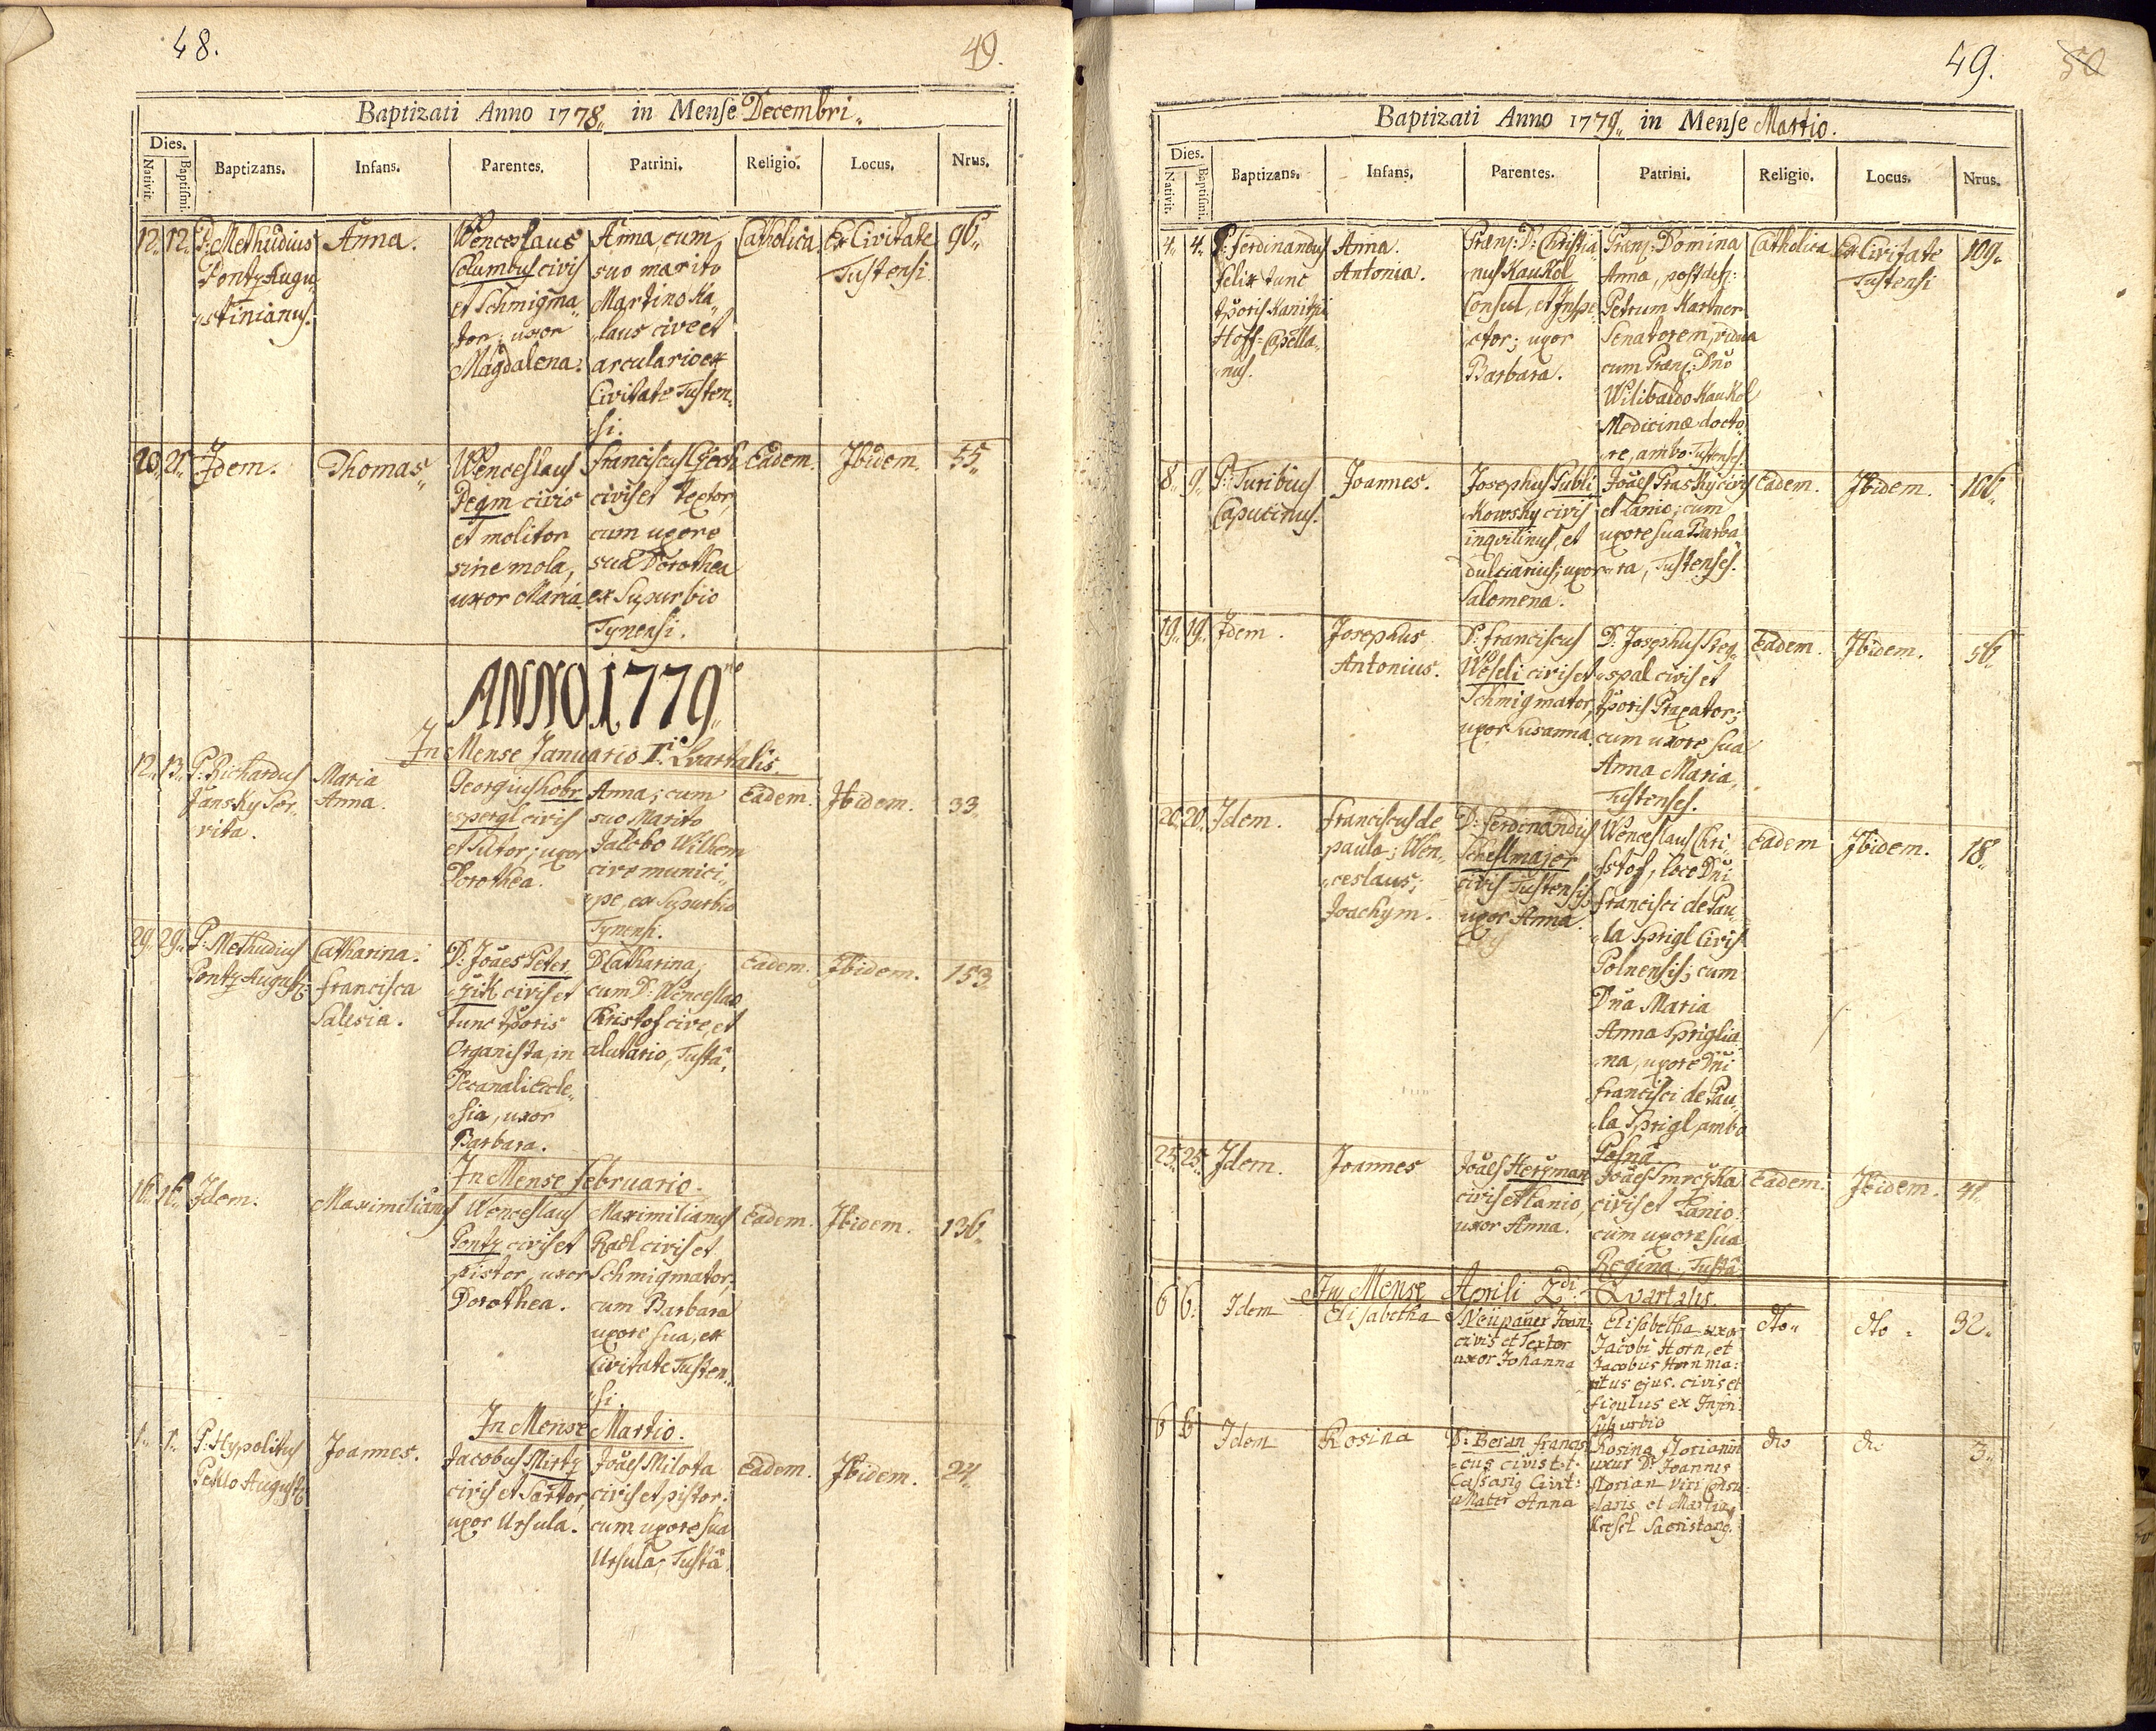 48.
49.
Baptizati Anno 1778„ in Mense Decembri„
Dies.
Nativit.
Baptismi.
Baptizans.
Infans.
Parentes.
Patrini.
Religio.
Locus.
Nrus.
12„ 12„
P: Methudius
Pontz Augu„
„stinianus.
Anna.
Wenceslaus
Columbus civis
et Schmigma„
„tor; uxor
Magdalena.
Anna, cum
suo marito
Martino Ka„
„laus cive et
arculario ex
Civitate Tusten„
„si.
Catholica
Ex Civitate
Tustensi
96„
20„ 21„
Idem.
Thomas„
Wenceslaus
civis
et molitor
sine mola,
uxor Maria
Franciscus
civis et textor,
cum uxore
sua Dorothea
ex Supurbio
Tynensi.
Eadem.
Ibidem.
55„
ANNO 1779„
In Mense Januario I. Quartalis.
12„ 13„
P: Richardus
Jansky Ser„
vita.
Maria
Anna.
Georgius Hobr„
„spergl civis
et Sutor; uxor
Dorothea.
Anna; cum
suo Marito
Jacobo Wilhem
cive munici„
„pe, ex Supurbio
Tynensi.
Eadem.
Ibidem.
33„
29„ 29„
P: Methudius
Pontz August:
Catharina.
Francisca
Salesia.
D: Joães Peter
„zik civis et
tunc tporis
Organista, in
Decanali Eccle„
„sia, uxor
Barbara.
D Catharina;
cum D: Wenceslao
Christof cive, et
alutario, Tustã.
Eadem.
Ibidem.
153
In Mense Februario.
16„ 16„
Idem.
Maximilianus
Wenceslaus
Pontz civis et
pistor, uxor
Dorothea.
Maximilianus
Radl civis et
Schmigmator;
cum Barbara
uxore sua, ex
Civitate Tusten„
„si.
Eadem.
Ibidem.
136„
In Mense Martio.
1„ 1„
P: Hypolitus
August:
Joannes.
Jacobus Mirtz
civis et Sartor,
uxor Ursula.
Joães Milota
civis et pistor;
cum uxore sua
Ursula; Tustã.
Eadem.
Ibidem.
24„
49.
50
Baptizati Anno 1779„ in Mense Martio.
Dies.
Nativit.
Baptismi.
Baptizans.
Infans.
Parentes.
Patrini.
Religio.
Locus.
Nrus.
4„ 4„
P: Ferdinandus
Felix tunc
tporis Kanitzii
Hoff-Capella„
„nus.
Anna.
Antonia.
Prænj: D: Christia„
nus Kaukol
Consul, et Inspe„
ctor; uxor
Barbara.
Prænj: Domina
Anna, post def:
Petrum Kartner
Senatorem, vidua
cum Prænj: Dño
Wilibaldo Kaukol
Medicinæ docto„
„re, ambo Tustens:
Catholica
Ex Civitate
Tustensi
109„
8„ 9„
P: Turibius
Caputinus.
Joannes.
Josephus Dubli„
„kowsky civis
inqvilinus, et
dulciarius; uxor
Salomena.
Joães Prasky civis
et Lanio; cum
uxore sua Barba„
„ra, Tustenses.
Eadem.
Ibidem.
106„
19„ 19„
Idem.
Josephus
Antonius.
D: Franciscus
Weseli civis et
Schmigmator,
uxor Susanna.
D: Josephus Preg„
„spal civis et
tporis Praxator;
cum uxore sua
Anna Maria,
Tustenses.
Eadem.
Ibidem.
56„
20„ 20„
Idem.
Franciscus de
paula; Wen„
„ceslaus;
Joachym.
D: Ferdinandus
Schellmajer
civis Tustensis
uxor Anna.
Wenceslaus Chri„
„stof, loco Dñi
Francisci de Pau„
„la Sprigl Civis
Polnensis; cum
Dña Maria
Anna Spriglia„
„na, uxore Dñi
Francisci de Pau„
„la Sprigl, ambo
Polnã
Eadem
Ibidem.
18„
25„ 25„
Idem.
Joannes
Joães Herzman
civis et Lanio,
uxor Anna.
Joães Smrczka
civis et Lanio:
cum uxore sua
Regina, Tustã.
Eadem.
Ibidem.
41„
In Mense Aprili 2di Quartalis.
6 6.
Idem
Elisabetha
Neüpauer Joan:
civis et Textor
uxor Johanna
Elisabetha uxor
Jacobi Horn, et
Jacobus Horn ma:
ritus ejus. civis et
figulus ex Infer:
Suburbio
dto„
dto„
32„
6 6
Idem
Rosina
D: Beran Francis„
„cus civis t.t.
Cassariq Civit:
Mater Anna
Rosina Florianin
uxor D: Joannis
Florian Viri Consu„
„laris et Martinq
Kresel Sacristanq.
dto
dto
3„